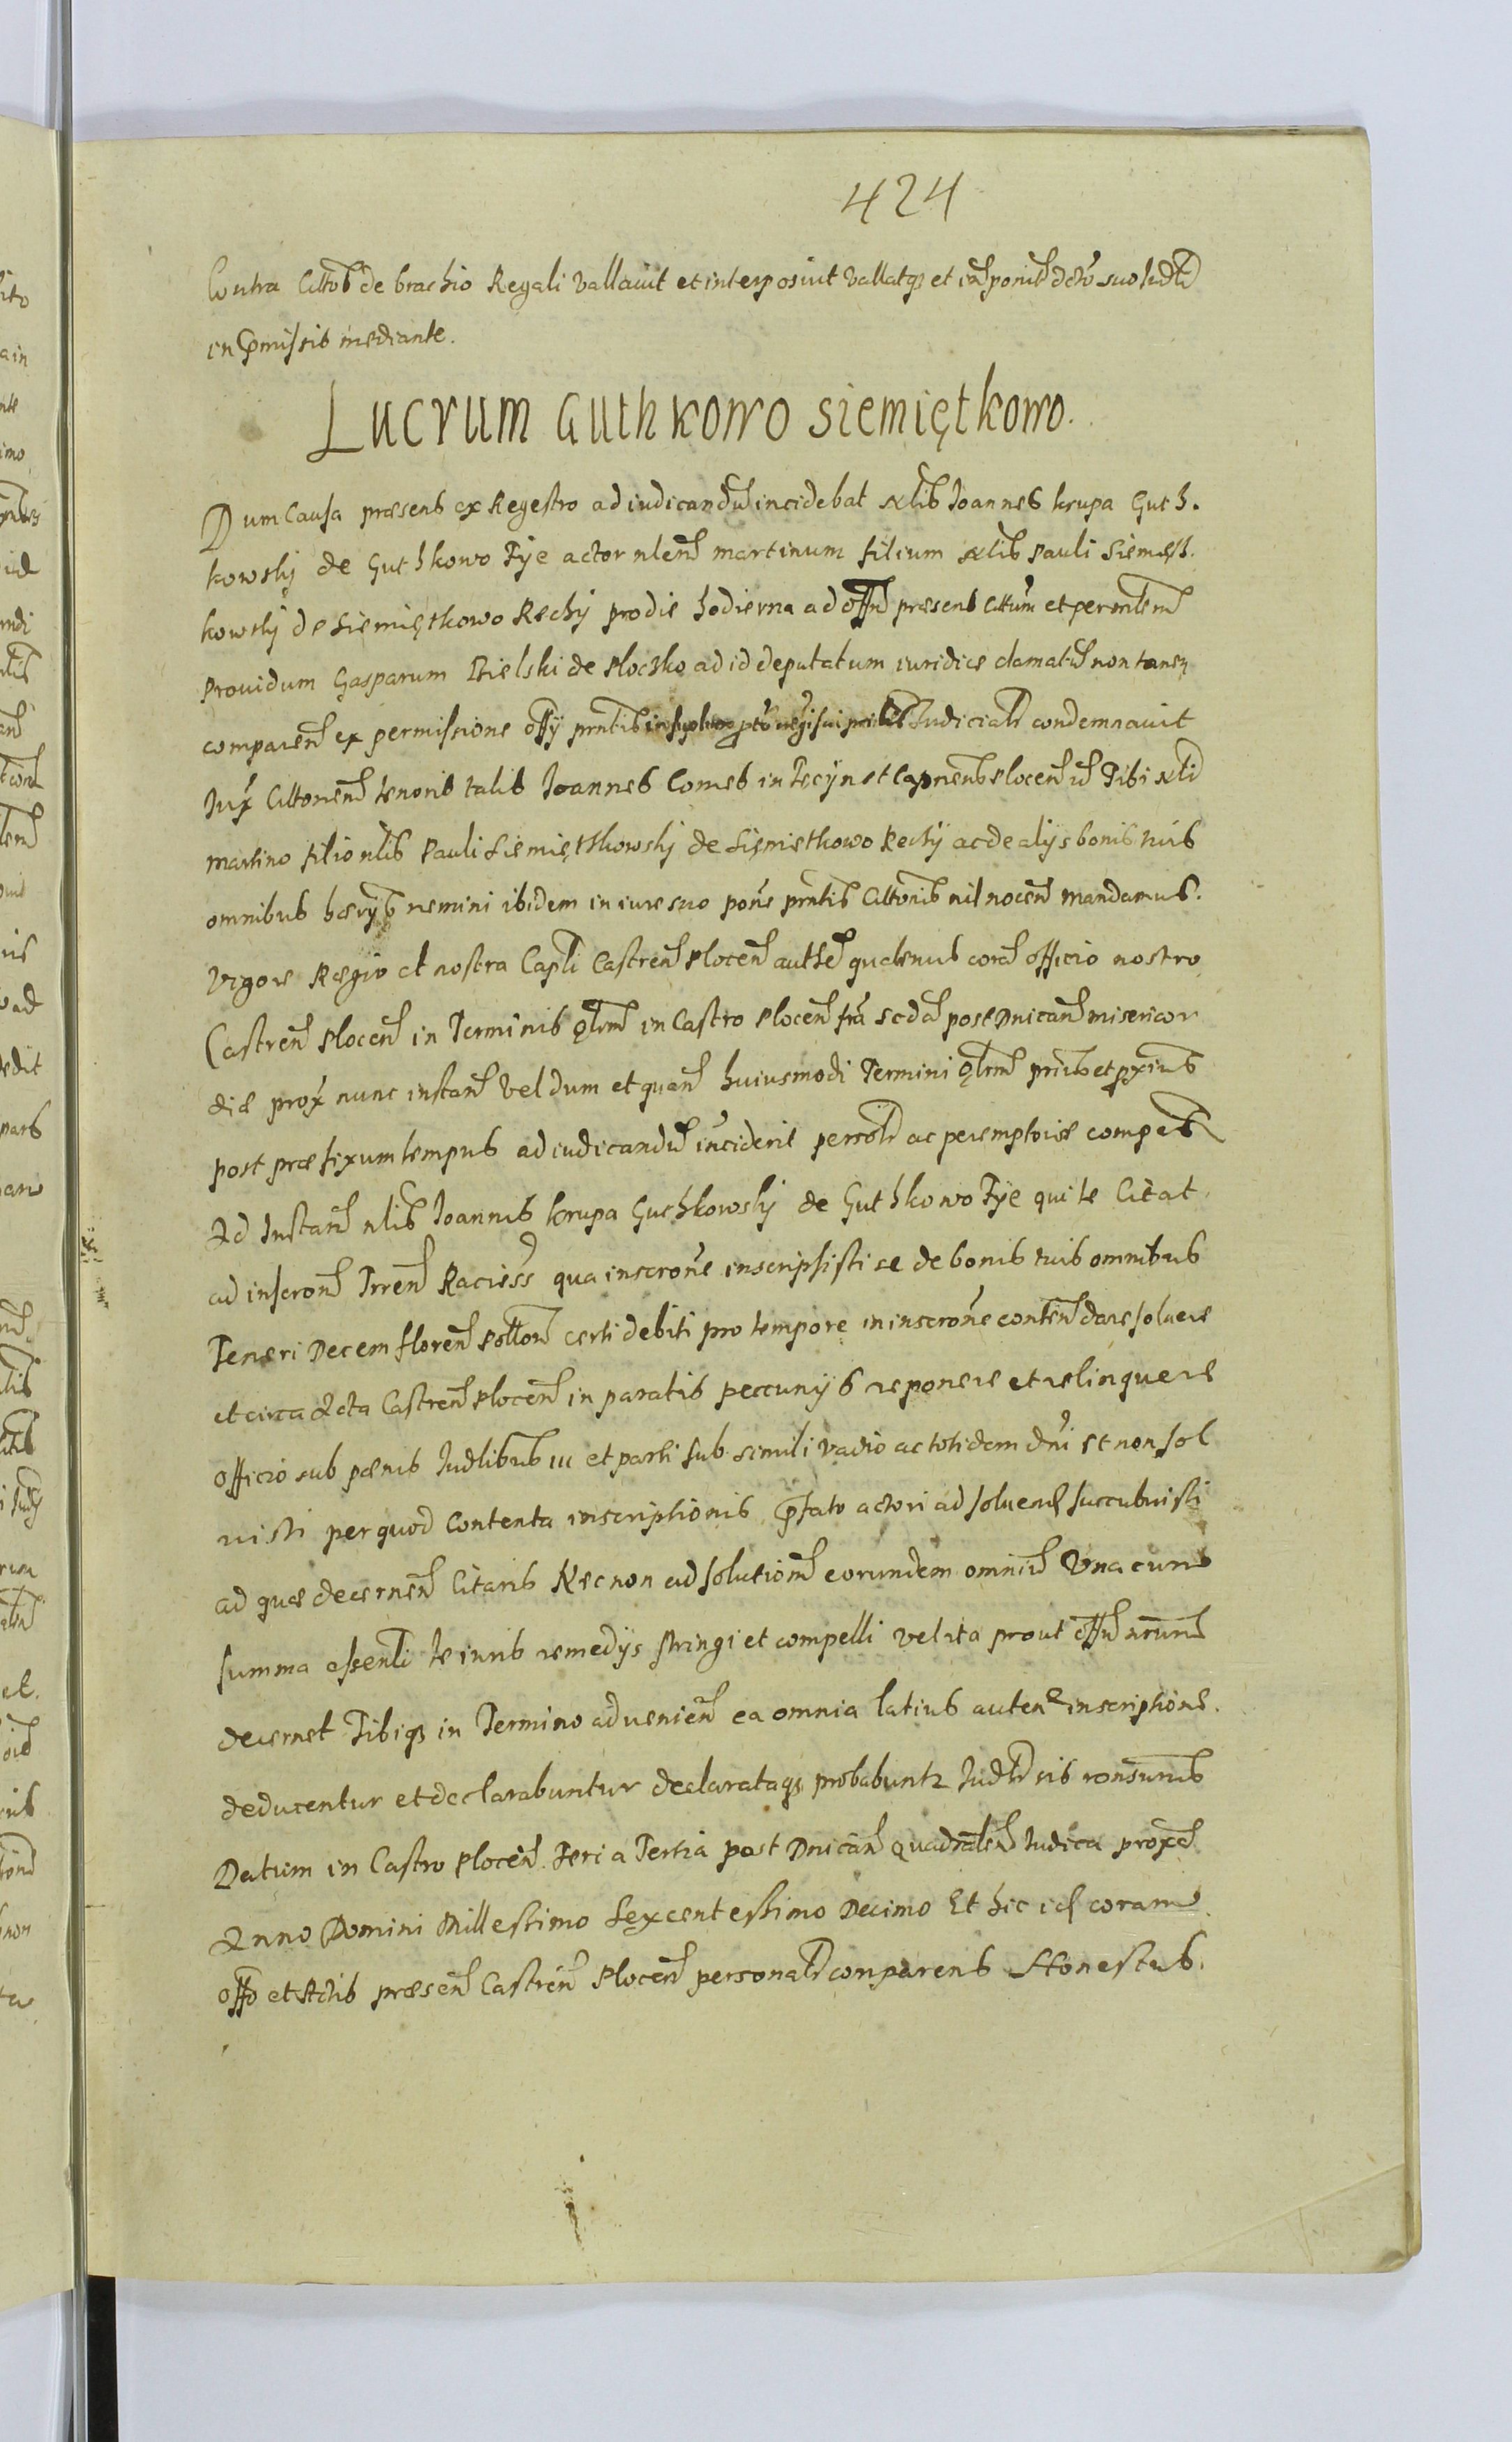 424
Contra Cittos de brachio Regali Vallavit et interposivit Vallatqз et
in pmissis mediante.
Lucrum Guthkowo Siemiętkowo.
Dum Causa præsens ex Regestro ad iudicandũ incidebat Nlis Joannes Krupa Guth.
kowskÿ de Guthkowo Fÿe actor nlem̃ martinum filium Nlis Pauli Siemięt.
kowskÿ de Siemiętkowo Rechÿ pro die hodierna ad offm præsens Cittum et per
Providum Gasparum Bielski de Ploczko ad id deputatum iuridice clamatũ non tanen
comparen̄ ex permissione offÿ prntis Judicialr condemnavit
Jux Cittonem̃ tenoris talis Joannes Comes in Tęcÿn et Capnens Plocen̄ Tibi Nli
Martino filio nlis Pauli Siemiętkowskÿ de Siemietkowo Rechÿ ac de alÿs bonis tuis
omnibus hærÿs nemini ibidem in iure suo pons prntis Cittonis nil nocen̄ Mandamus.
Vigore Regio et nostra Capli Castren̄ Plocen̄ authē quatenus corã officio nostro
Castren̄ Plocen̄ in Terminis Qlrm in Castro Plocen̄ fra Scda post Dnicam̃ misericor
diæ prox nunc instan̄ Vel dum et quan̄ huiusmodi Termini Qlrm primis et
post præfixum tempus ad iudicandũ inciderit personlr ac peremptorie compas
Ad Instan̄ nlis Joannis Krupa Guthkowskÿ de Guthkowo Fÿe qui te Citat
ad inscronē Trren̄ Raciess qua inscrone inscripsisti se de bonis tuis omnibus
Teneri Decem floren̄ Polton certi debiti pro tempore in inscrone conten̄ dare solvere
et circa Acta Castren̄ Plocen̄ in paratis peccunÿs reponere et relinquere
Officio sub pænis Judlibus iii et parti sub simili vadio ac totidem dni et non sol
visti per quod Contenta inscriptionis pfato actori ad solven̄ succubuisti
ad quæ decernen̄ Citaris Necnon ad solutionē eorundem omniũ Vna cum
summa essenli te iuris remedÿs stringi et compelli Vel ita prout offm nrum
decernet Tibiqз in Termino advenien̄ ea omnia latius auten inscriptione
deducentur et declarabuntur declarataqз probabuntr Judlr sis
Datum in Castro Plocen̄ Feria Tertia post Dnicam̃ quadralem̃ Judica proxã
Anno Domini Millesimo Sexcentesimo Decimo Et hic id coram
offo et Actis præsen̄ Castren̄ Plocen̄ personalr comparens Honestus.